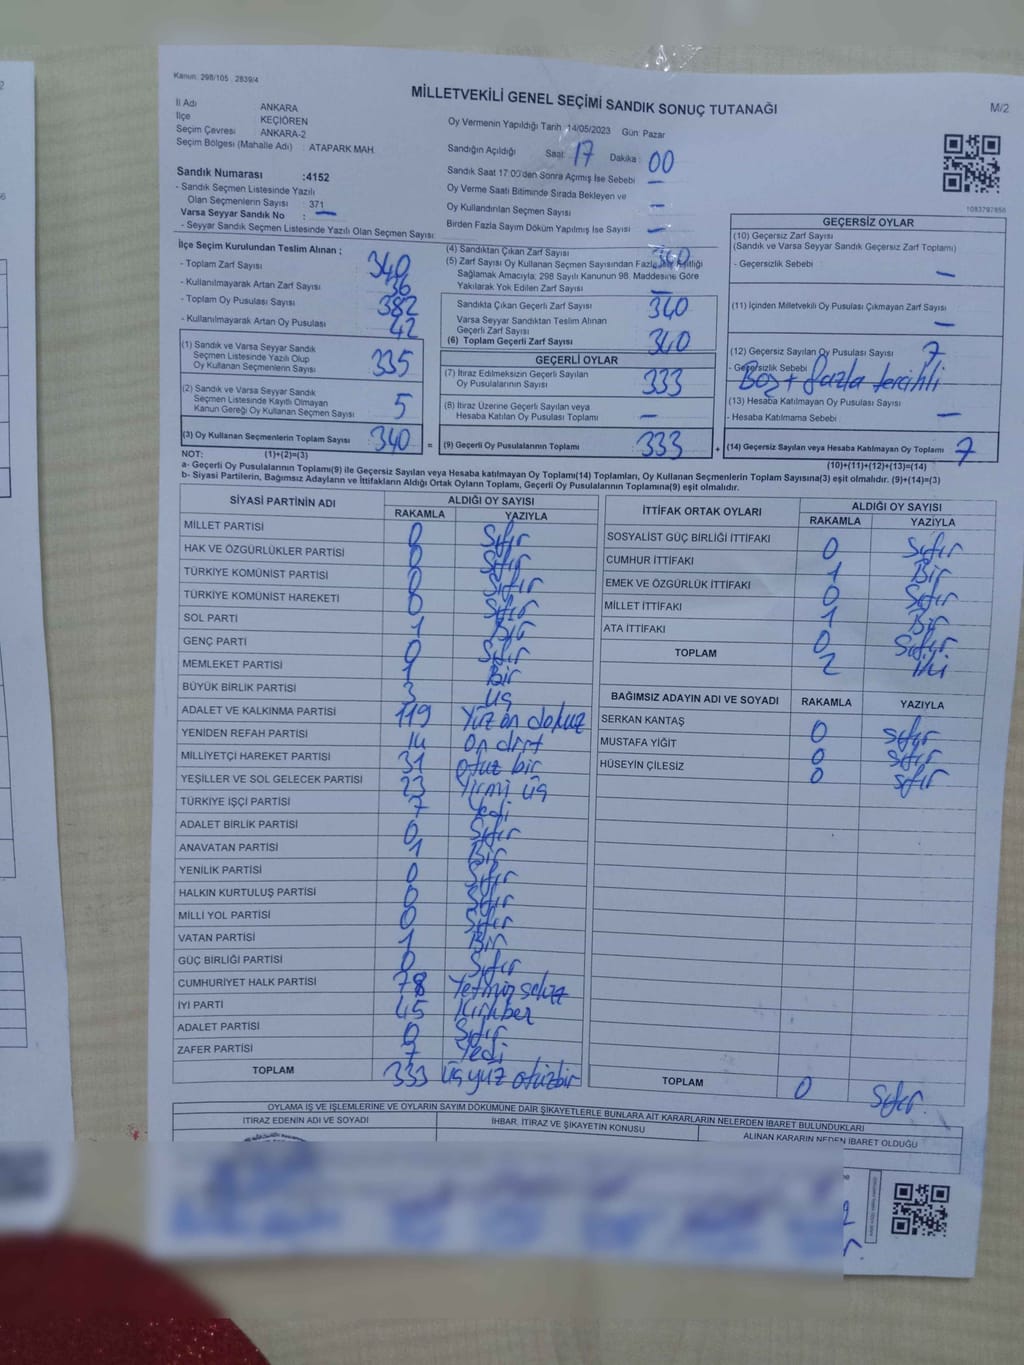 Kanun: 298/105 . 2839/4
MİLLETVEKİLİ GENEL SEÇİMİ SANDIK SONUÇ TUTANAĞI
M/2
İl Adı ANKARA
İlçe KEÇİÖREN
Seçim Çevresi ANKARA-2
Seçim Bölgesi (Mahalle Adı) : ATAPARK MAH.
Oy Vermenin Yapıldığı Tarih 14/05/2023 Gün: Pazar
Sandığın Açıldığı Saat 17 Dakika : 00
Sandık Saat 17:00'den Sonra Açmış İse Sebebi —
Oy Verme Saati Bitiminde Sırada Bekleyen ve
Oy Kullandırılan Seçmen Sayısı —
Birden Fazla Sayım Döküm Yapılmış İse Sayısı —
1083797856
Sandık Numarası :4152
- Sandık Seçmen Listesinde Yazılı
Olan Seçmenlerin Sayısı : 371
Varsa Seyyar Sandık No : —
- Seyyar Sandık Seçmen Listesinde Yazılı Olan Seçmen Sayısı:
İlçe Seçim Kurulundan Teslim Alınan ;
- Toplam Zarf Sayısı 340
- Kullanılmayarak Artan Zarf Sayısı 36
- Toplam Oy Pusulası Sayısı 382
- Kullanılmayarak Artan Oy Pusulası 42
(1) Sandık ve Varsa Seyyar Sandık
Seçmen Listesinde Yazılı Olup
Oy Kullanan Seçmenlerin Sayısı 335
(2) Sandık ve Varsa Seyyar Sandık
Seçmen Listesinde Kayıtlı Olmayan
Kanun Gereği Oy Kullanan Seçmen Sayısı 5
(3) Oy Kullanan Seçmenlerin Toplam Sayısı 340 =
(4) Sandıktan Çıkan Zarf Sayısı 340
(5) Zarf Sayısı Oy Kullanan Seçmen Sayısından Fazla İse Eşitliği
Sağlamak Amacıyla; 298 Sayılı Kanunun 98. Maddesine Göre
Yakılarak Yok Edilen Zarf Sayısı —
Sandıkta Çıkan Geçerli Zarf Sayısı 340
Varsa Seyyar Sandıktan Teslim Alınan
Geçerli Zarf Sayısı
(6) Toplam Geçerli Zarf Sayısı 340
GEÇERLİ OYLAR
(7) İtiraz Edilmeksizin Geçerli Sayılan
Oy Pusulalarının Sayısı 333
(8) İtiraz Üzerine Geçerli Sayılan veya
Hesaba Katılan Oy Pusulası Toplamı —
(9) Geçerli Oy Pusulalarının Toplamı 333 +
GEÇERSİZ OYLAR
(10) Geçersiz Zarf Sayısı
(Sandık ve Varsa Seyyar Sandık Geçersiz Zarf Toplamı)
- Geçersizlik Sebebi —
(11) İçinden Milletvekili Oy Pusulası Çıkmayan Zarf Sayısı —
(12) Geçersiz Sayılan Oy Pusulası Sayısı 7
- Geçersizlik Sebebi Boş + fazla tercihli
(13) Hesaba Katılmayan Oy Pusulası Sayısı —
- Hesaba Katılmama Sebebi
(14) Geçersiz Sayılan veya Hesaba Katılmayan Oy Toplamı 7
NOT: (1)+(2)=(3) (10)+(11)+(12)+(13)=(14)
a- Geçerli Oy Pusulalarının Toplamı(9) ile Geçersiz Sayılan veya Hesaba katılmayan Oy Toplamı(14) Toplamları, Oy Kullanan Seçmenlerin Toplam Sayısına(3) eşit olmalıdır. (9)+(14)=(3)
b- Siyasi Partilerin, Bağımsız Adayların ve İttifakların Aldığı Ortak Oyların Toplamı, Geçerli Oy Pusulalarının Toplamına(9) eşit olmalıdır.
SİYASİ PARTİNİN ADI ALDIĞI OY SAYISI
RAKAMLA YAZIYLA
MİLLET PARTİSİ 0 Sıfır
HAK VE ÖZGÜRLÜKLER PARTİSİ 0 Sıfır
TÜRKİYE KOMÜNİST PARTİSİ 0 Sıfır
TÜRKİYE KOMÜNİST HAREKETİ 0 Sıfır
SOL PARTİ 1 Bir
GENÇ PARTİ 0 Sıfır
MEMLEKET PARTİSİ 1 Bir
BÜYÜK BİRLİK PARTİSİ 3 üç
ADALET VE KALKINMA PARTİSİ 119 Yüz on dokuz
YENİDEN REFAH PARTİSİ 14 On dört
MİLLİYETÇİ HAREKET PARTİSİ 31 Otuz bir
YEŞİLLER VE SOL GELECEK PARTİSİ 23 Yirmi üç
TÜRKİYE İŞÇİ PARTİSİ 7 Yedi
ADALET BİRLİK PARTİSİ 0 Sıfır
ANAVATAN PARTİSİ 1 Bir
YENİLİK PARTİSİ 0 Sıfır
HALKIN KURTULUŞ PARTİSİ 0 Sıfır
MİLLİ YOL PARTİSİ 0 Sıfır
VATAN PARTİSİ 1 Bir
GÜÇ BİRLİĞİ PARTİSİ 0 Sıfır
CUMHURİYET HALK PARTİSİ 78 Yetmiş sekiz
İYİ PARTİ 45 Kırkbeş
ADALET PARTİSİ 0 Sıfır
ZAFER PARTİSİ 7 Yedi
TOPLAM 333 üçyüz otuzbir
İTTİFAK ORTAK OYLARI ALDIĞI OY SAYISI
RAKAMLA YAZIYLA
SOSYALİST GÜÇ BİRLİĞİ İTTİFAKI 0 Sıfır
CUMHUR İTTİFAKI 1 Bir
EMEK VE ÖZGÜRLÜK İTTİFAKI 0 Sıfır
MİLLET İTTİFAKI 1 Bir
ATA İTTİFAKI 0 Sıfır
TOPLAM 2 İki
BAĞIMSIZ ADAYIN ADI VE SOYADI RAKAMLA YAZIYLA
SERKAN KANTAŞ 0 sıfır
MUSTAFA YİĞİT 0 sıfır
HÜSEYİN ÇİLESİZ 0 sıfır
TOPLAM 0 Sıfır.
OYLAMA İŞ VE İŞLEMLERİNE VE OYLARIN SAYIM DÖKÜMÜNE DAİR ŞİKAYETLERLE BUNLARA AİT KARARLARIN NELERDEN İBARET BULUNDUKLARI
İTİRAZ EDENİN ADI VE SOYADI İHBAR, İTİRAZ VE ŞİKAYETİN KONUSU ALINAN KARARIN NEDEN İBARET OLDUĞU